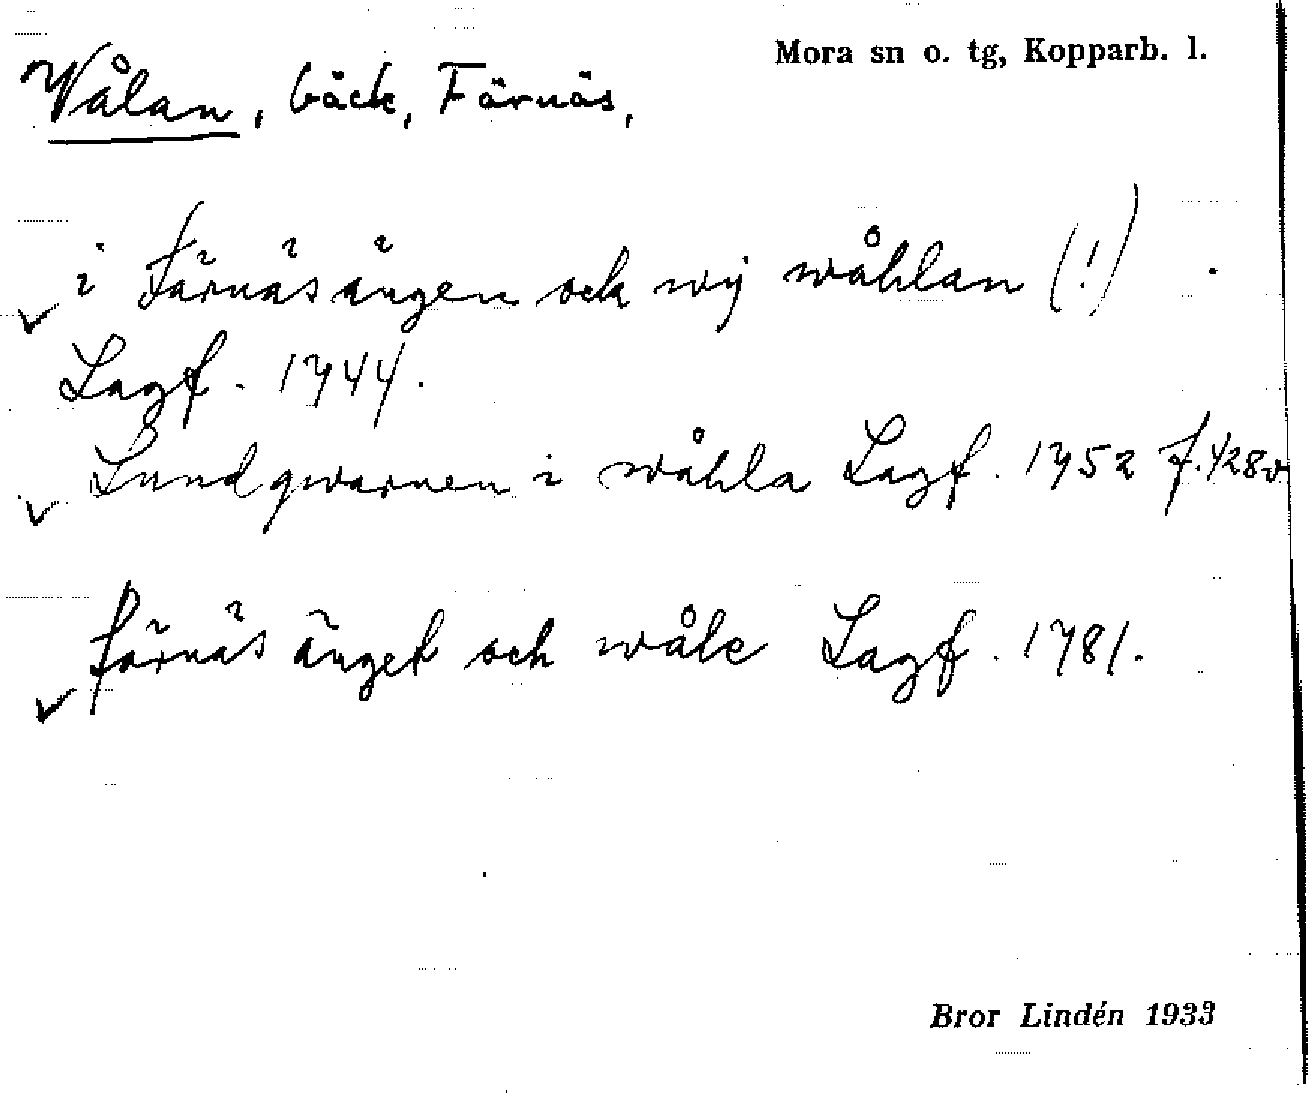 Mora sn o. tg, Kopparb. l.
Wålan, bäck, Färnäs,
i Färnäsängen och wij wåhlan (!)
Lagf. 1744.
Lundqwarnen i wåhla Lagf. 1752 f. 428v
färnäs änget och wåle Lagf. 1781.
Bror Lindén 1933